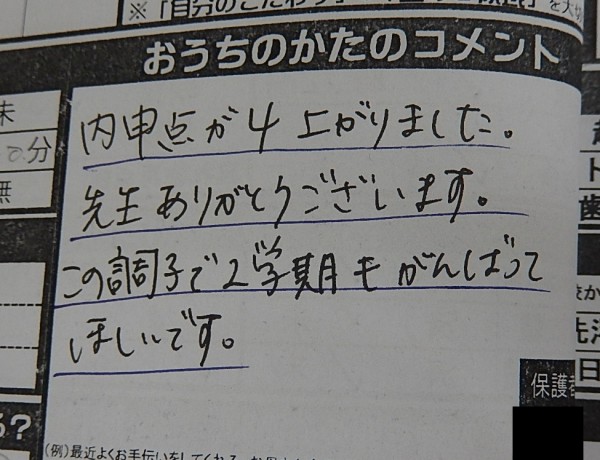 ※「自分のこだわり」
おうちのかたのコメント
未
分
無
内申点が4 上がりました。
先生ありがとうございます。
この調子で2学期も がんばって
ほしいです。
歯
日
保護者
(例)最近よくお手伝いをしてくれる